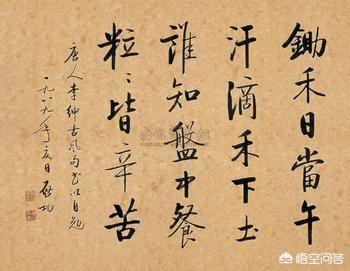 鋤禾日當午
汗滴禾下土
誰知盤中餐
粒々皆辛苦
唐人李紳古風句書以自勉
一九八九年夏日 啟功
悟空问答